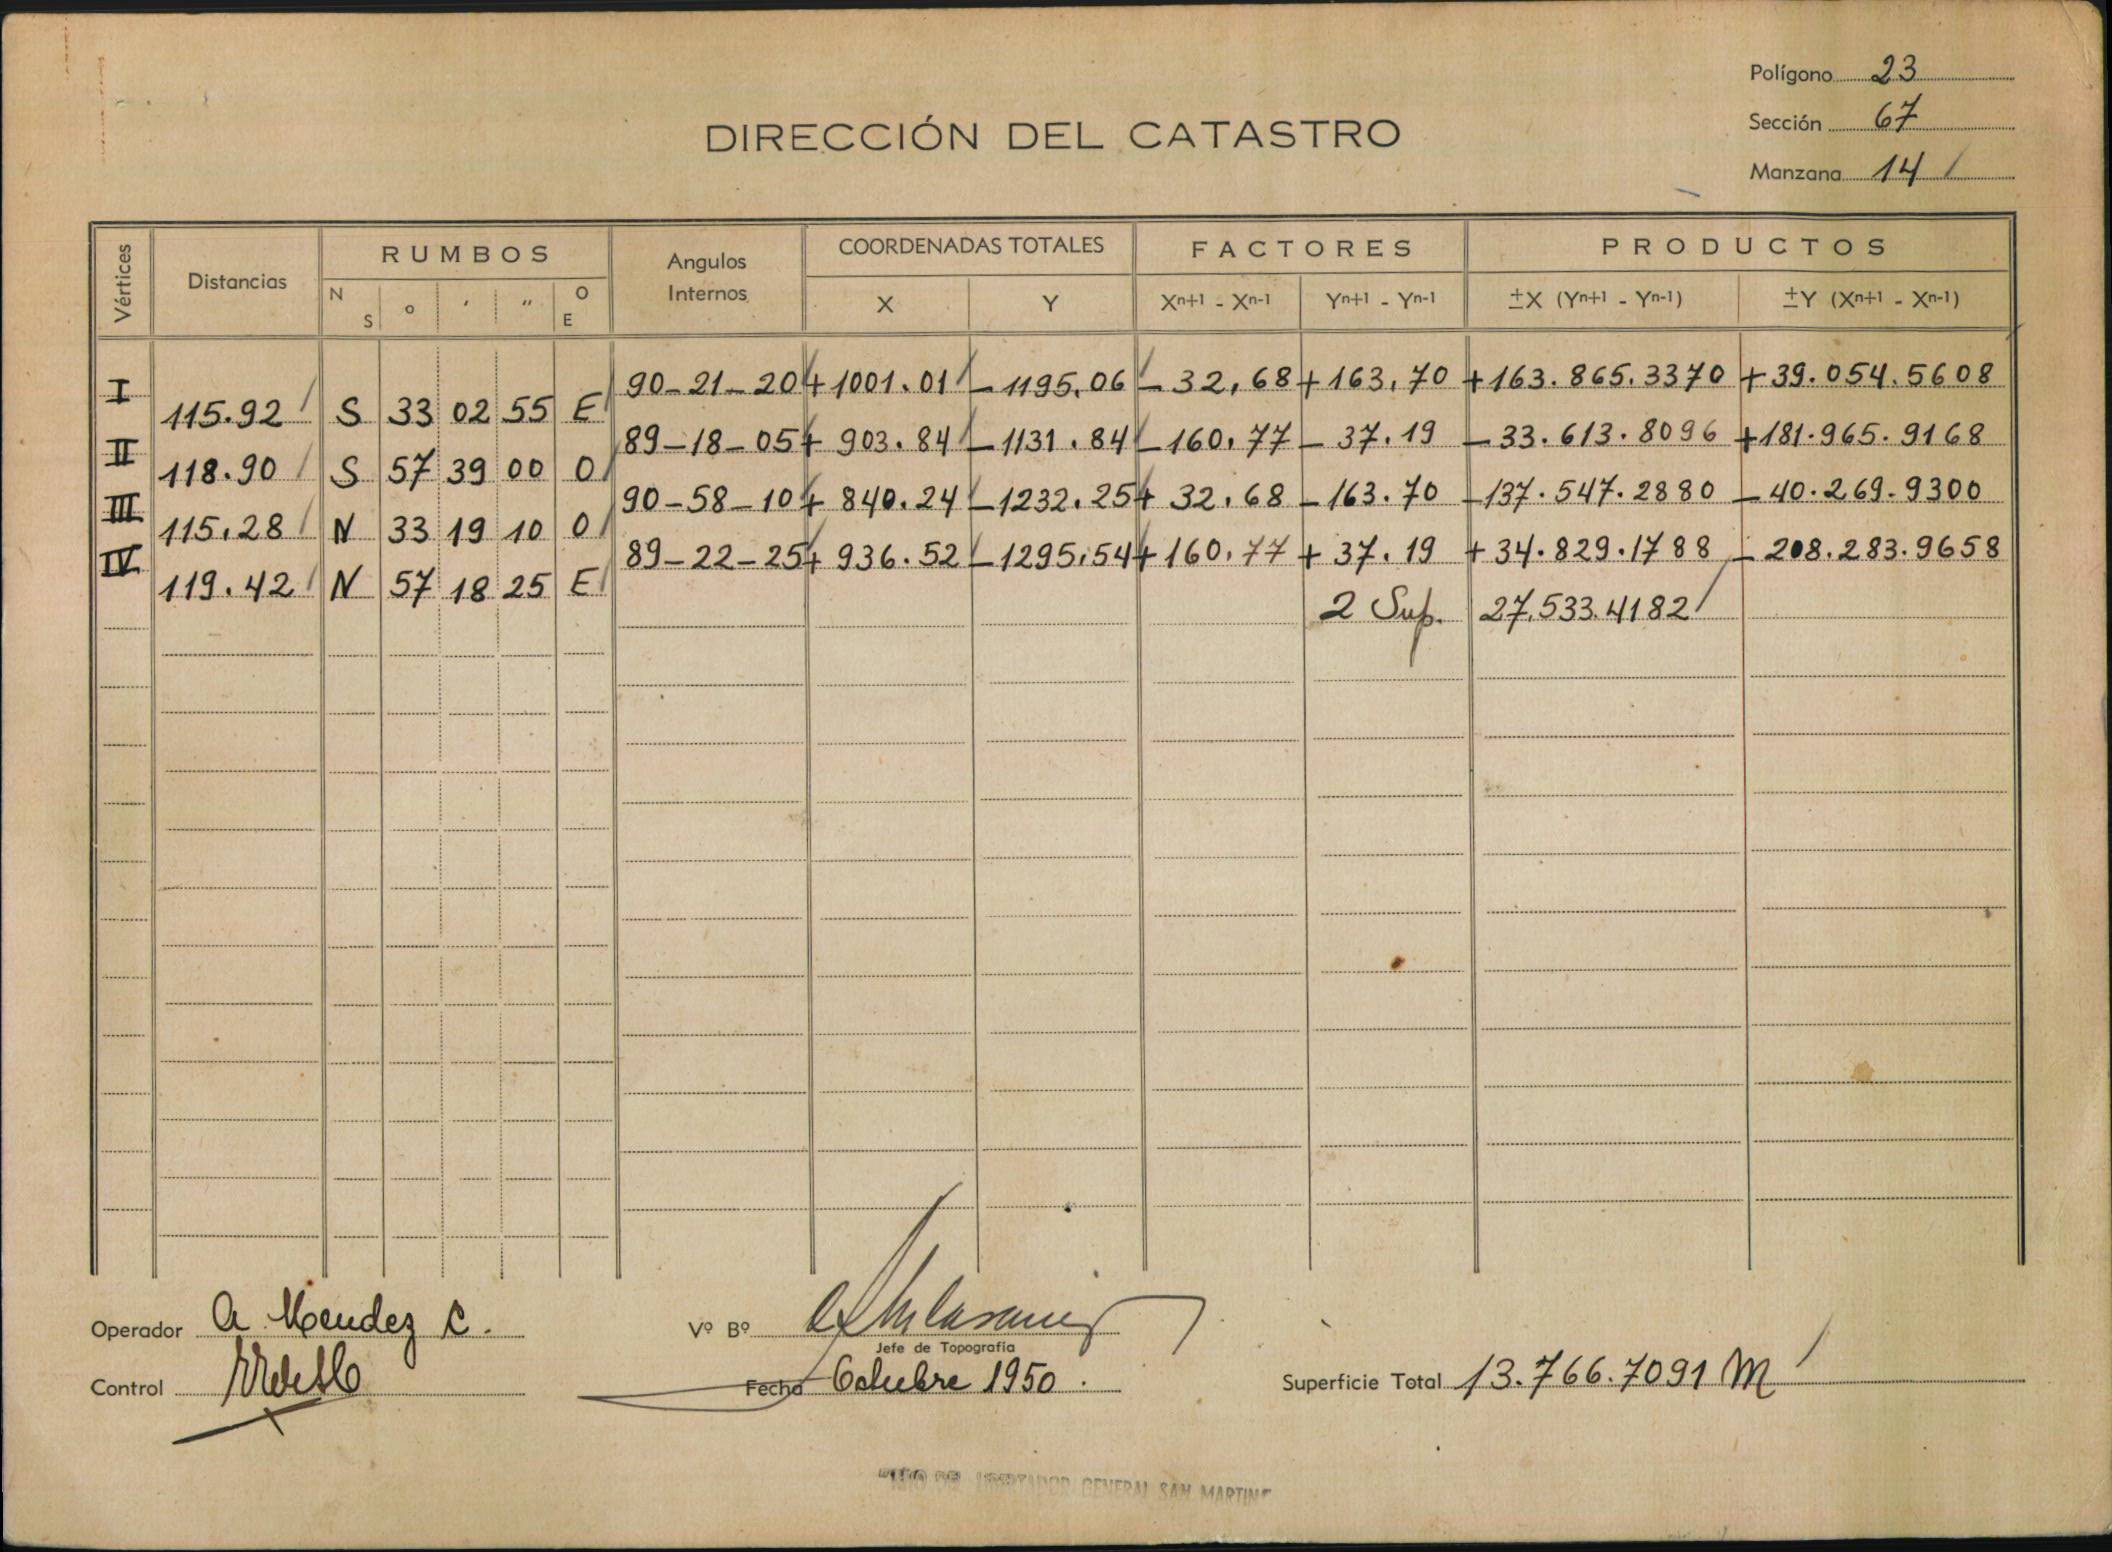 Polígono 23
Sección 67
Manzana 14
DIRECCIÓN DEL CATASTRO
Vértices Distancias RUMBOS Angulos Internos COORDENADAS TOTALES FACTORES PRODUCTOS
N S ° ′ ″ O E X Y Xn+1 - Xn-1 Yn+1 - Yn-1 ±X (Yn+1 - Yn-1) ±Y (Xn+1 - Xn-1)
I 90-21-20 +1001.01 -1195.06 -32,68 +163,70 +163.865.3370 +39.054.5608
115.92 S 33 02 55 E
II 89-18-05 + 903.84 -1131.84 -160,77 - 37.19 -33.613.8096 +181.965.9168
118.90 S 57 39 00 O
III 90-58-10 + 840.24 -1232.25 + 32.68 -163.70 -137.547.2880 -40.269.9300
115.28 N 33 19 10 O
IV 89-22-25 + 936.52 -1295.54 +160,77 + 37.19 +34.829.1788 -208.283.9658
119.42 N 57 18 25 E
2 Sup. 27.533.4182
Operador A Mendez C.
Vº Bº
Jefe de Topografia
Control
Fecha Octubre 1950.
Superficie Total 13.766.7091 M
LIBERTADOR GENERAL SAN MARTIN"